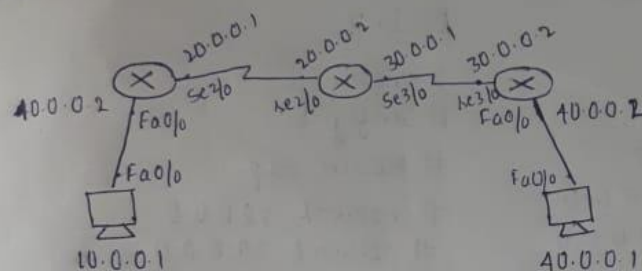 20.0.0.1
20.0.0.2
30.0.0.1
30.0.0.2
se2/0
se2/0
se3/0
se3/0
40.0.0.2
Fa0/0
Fa0/0
40.0.0.2
Fa0/0
Fa0/0
10.0.0.1
40.0.0.1